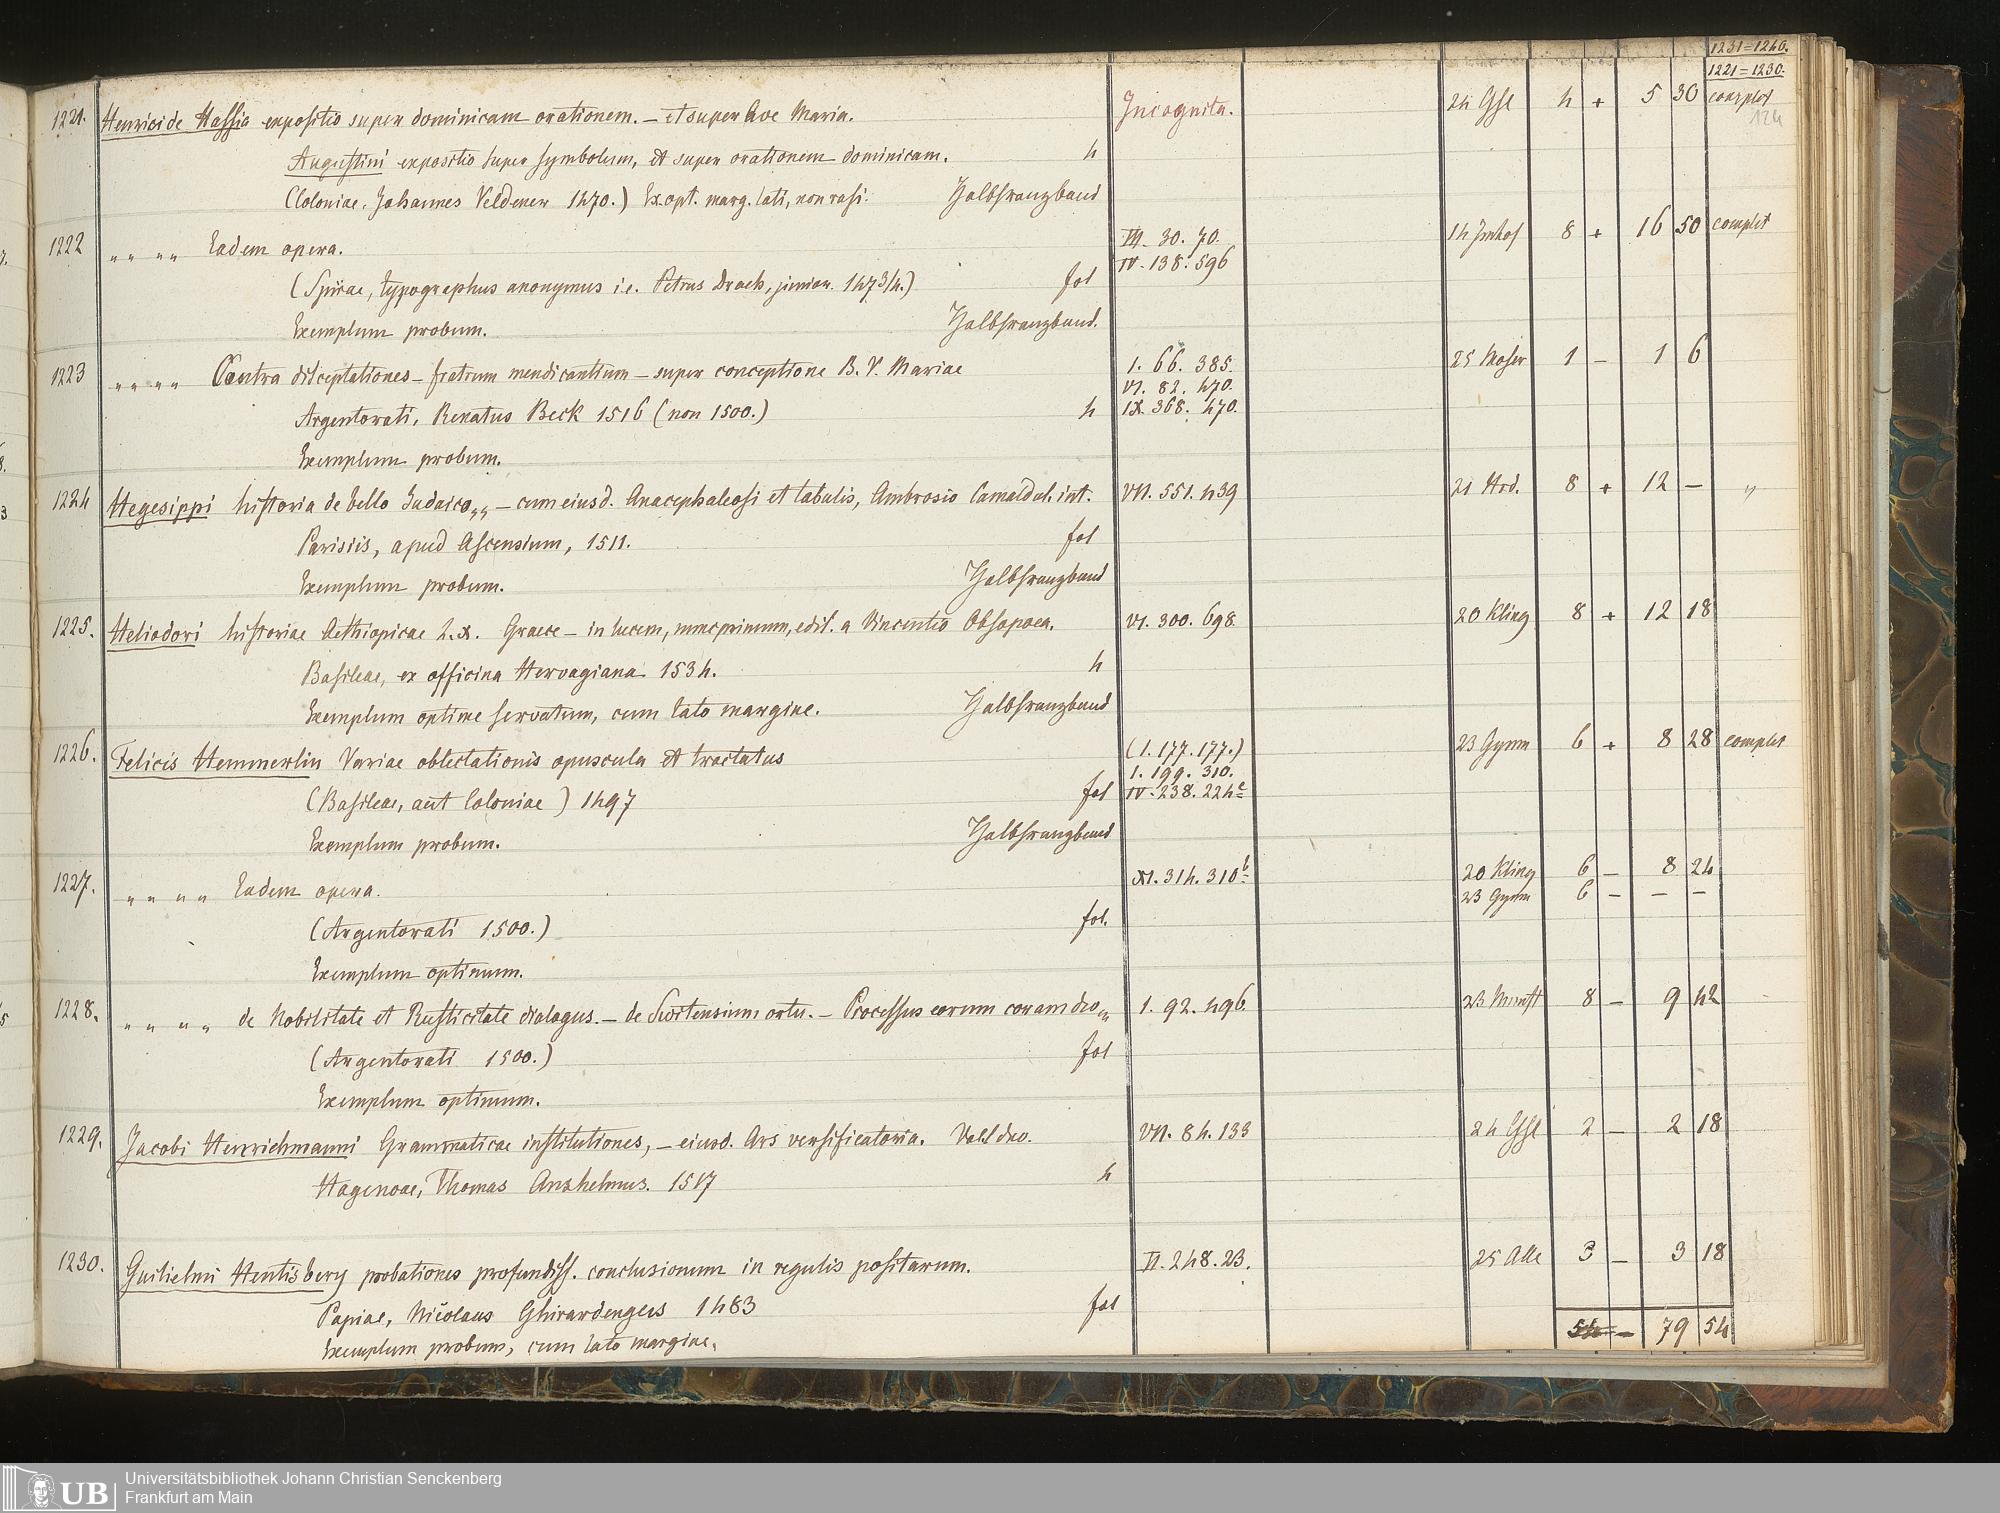 1231=1240.
1221=1230.
1221. Henrici de Hassia expositio super dominicam orationem. – et super Ave Maria. Incognita. 24 Gsl 4 + 5 30 complet
124
Augustini expositio super symbolum, et super orationem dominicam. 4
(Coloniae, Johannes Veldener 1470.) Ex. opt. marg. lati, non rasi. Halbfranzband
1222 „ „ „ „ Eadem opera. III. 30. 70. 14 Imhof 8 + 16 50 complet
IV. 138. 596
(Spirae, typographus anonymus i.e. Petrus Drach, junior. 1473/4.) fol
Exemplum probum. Halbfranzband.
1223 „ „ „ „ Contra disceptationes – fratrum mendicantium – super conceptione B. V. Mariae I. 66. 385. 25 Moser 1 – 1 6
VI. 82. 470.
Argentorati, Renatus Beck 1516 (non 1500.) 4 IX. 368. 470.
Exemplum probum.
1224 Hegesippi historia de bello Judaico„„ – cum eiusd. Anacephaleosi et tabulis, Ambrosio Camaldul. int. VII. 551. 439 21 Hrd. 8 + 12 – „
Parisiis, apud Ascensium, 1511. fol
Exemplum probum. Halbfranzband
1225. Heliodori historiae Aethiopicae L. X. Graece – in lucem, nunc primum, edit. a Vincentio Obsopoea. VI. 300. 698. 20 Kling 8 + 12 18
Basileae, ex officina Hervagiana 1534. 4
Exemplum optime servatum, cum lato margine. Halbfranzband
1226. Felicis Hemmerlin Variae oblectationis opuscula et tractatus (I. 177. 177.) 23 Gymn 6 + 8 28 complet
I. 199. 310.
(Basileae, aut Coloniae) 1497 fol IV. 238. 224c
Exemplum probum. Halbfranzband
1227. „ „ „ „ Eadem opera. XI. 314. 310b 20 Kling 6 – 8 24
23 Gymn 6 – – –
(Argentorati 1500.) fol.
Exemplum optimum.
1228. „ „ „ „ de Nobilitate et Rusticitate dialogus. – de Switensium ortu. – Processus eorum coram deo„ I. 92. 496. 8 – 9 42
(Argentorati 1500.) fol
Exemplum optimum.
1229. Jacobi Henrichmanni Grammaticae institutiones, – eiusd. Ars versificatoria. VII. 84. 133 24 Gsl 2 – 2 18
Hagenoae, Thomas Anshelmus. 1517 4
1230. Guilielmi Hentisbery probationes profundiss. conclusionum in regulis positarum. VI. 248. 23. 25 Alle 3 – 3 18
Papiae, Nicolaus Ghirardengus 1483 fol
54 – 79 54
Exemplum probum, cum lato margine.
UB Universitätsbibliothek Johann Christian Senckenberg
Frankfurt am Main